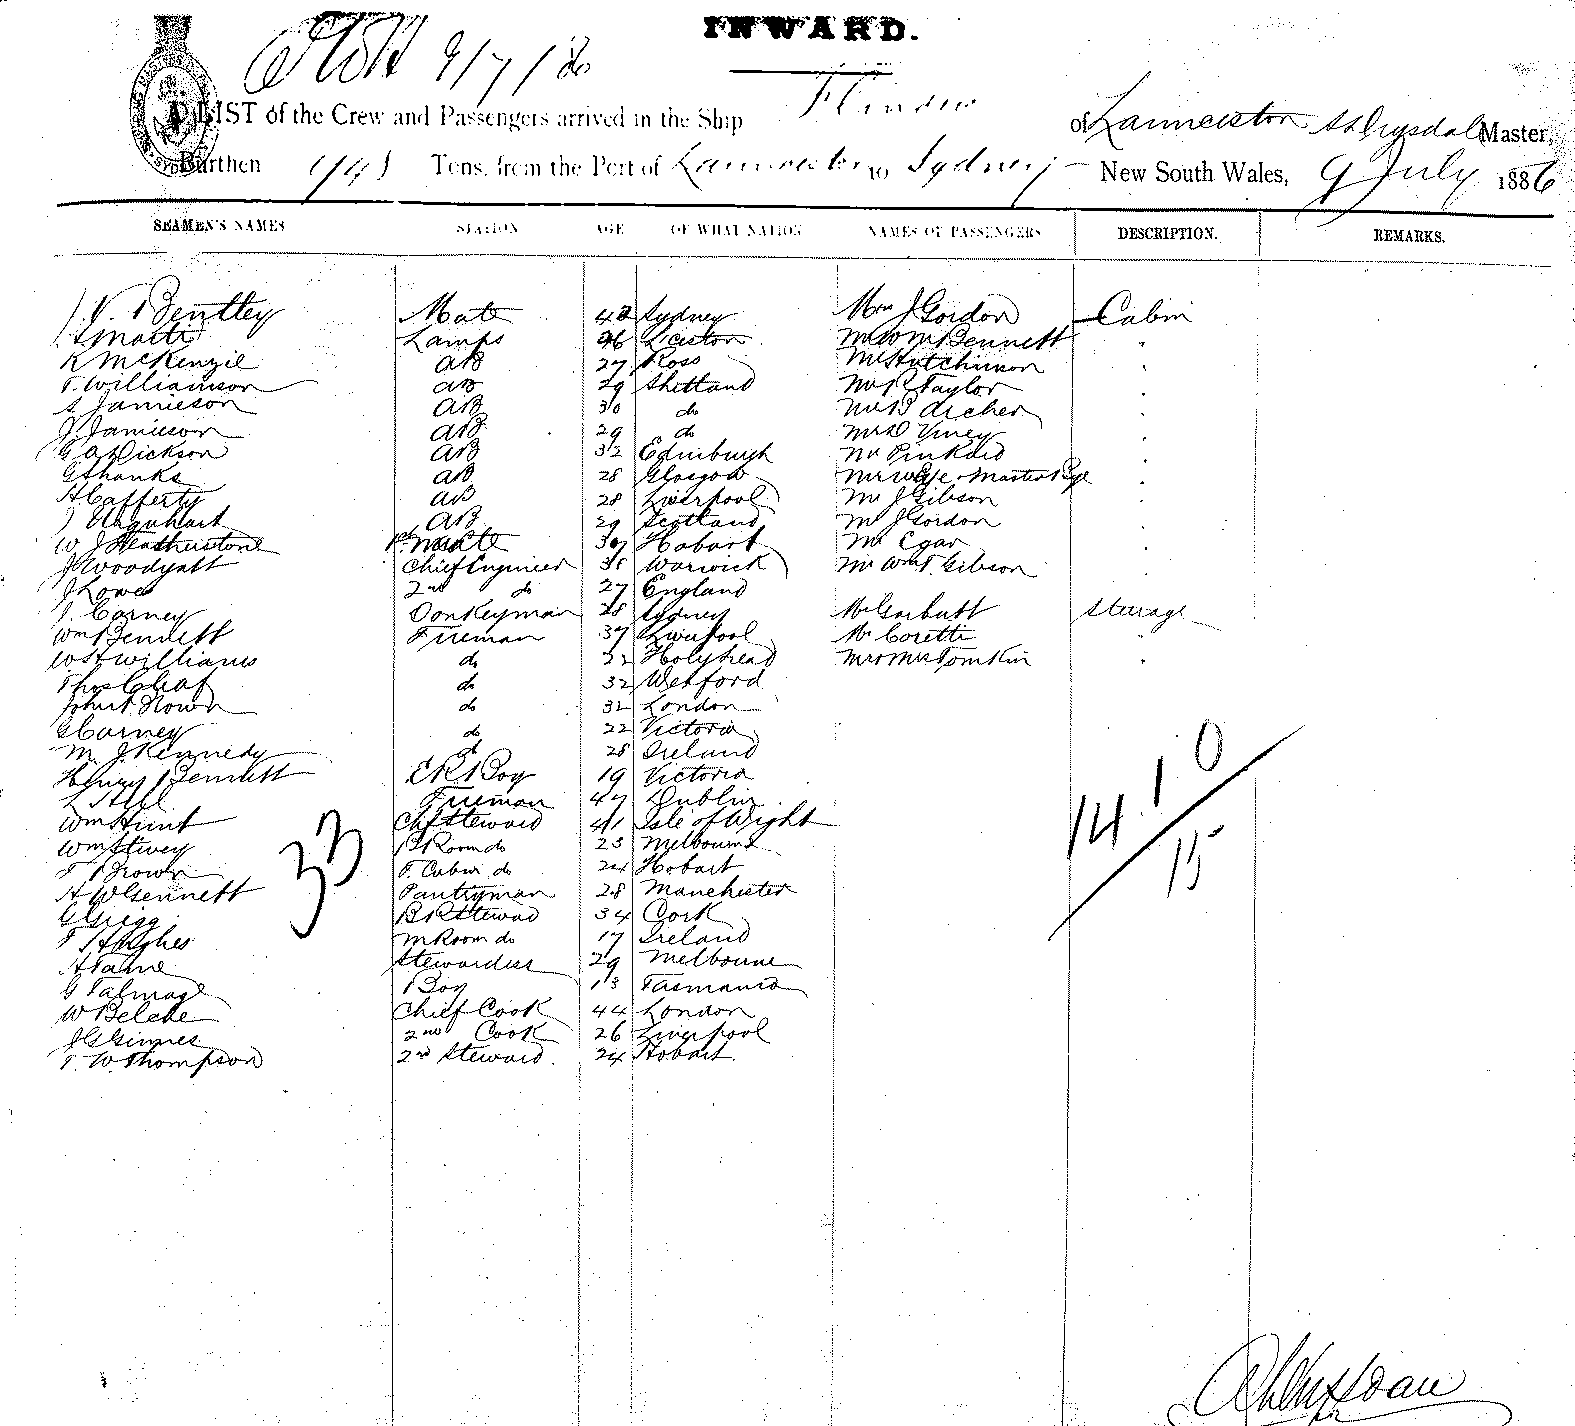 INWARD.
9/7/86
A LIST of the Crew and Passengers arrived in the Ship Flinders of Launceston Drysdale Master,
Burthen 948 Tons, from the Port of Launceston to Sydney New South Wales, 9 July 1886
SEAMEN'S NAMES STATION AGE OF WHAT NATION NAMES OF PASSENGERS DESCRIPTION. REMARKS.
V. Bentley Mate 42 Sydney J Gordon Cabin
Smart Lamps L'ceston Bennett "
R McKenzie AB 27 Ross Mr Hutchinson "
T. Williamson AB 29 Shetland Taylor "
Jamieson AB 30 do Archer "
J Jamieson AB 29 do Viney "
Dickson AB 32 Edinburgh Mr Pinkard "
G Shanks AB 28 Glasgow Mr & Mrs Pye & Master Pye "
H Cafferty AB 28 Liverpool Mr J Gibson "
J Urquhart AB 29 Scotland Mr J Gordon "
W J Featherstone Mate Hobart Mr Egar "
J Woodyatt Chief Engineer 38 Warwick Mr Wm T. Gibson "
J Lowe 2nd do 27 England
Carney Donkeyman 28 Sydney Mr Garbutt Steerage
Wm Bennett Fireman 37 Liverpool Mr Coretti "
W H Williams do 22 Holyhead Mr & Mrs Tomkin "
Thos Cleaf do 32 Wexford
John do 32 London
Carney do 22 Victoria
M. J. Kennedy do 28 Ireland
Henry Bennett E R Boy 19 Victoria
Fireman 47 Dublin
Wm Hunt Chf Steward 41 Isle of Wight
Wm Room do 23 Melbourne
T Brown F. Cabin do 24 Hobart
A W Gennett Pantryman 28 Manchester
G Grigg B R Steward 34 Cork
T Hughes M Room do 17 Ireland
A Tame Stewardess 29 Melbourne
G Talmage Boy 13 Tasmania
W Belcke Chief Cook 44 London
J G Ginnes 2nd Cook 26 Liverpool
T. W. Thompson 2nd Steward. 24 Hobart.
33
14 1 0
15